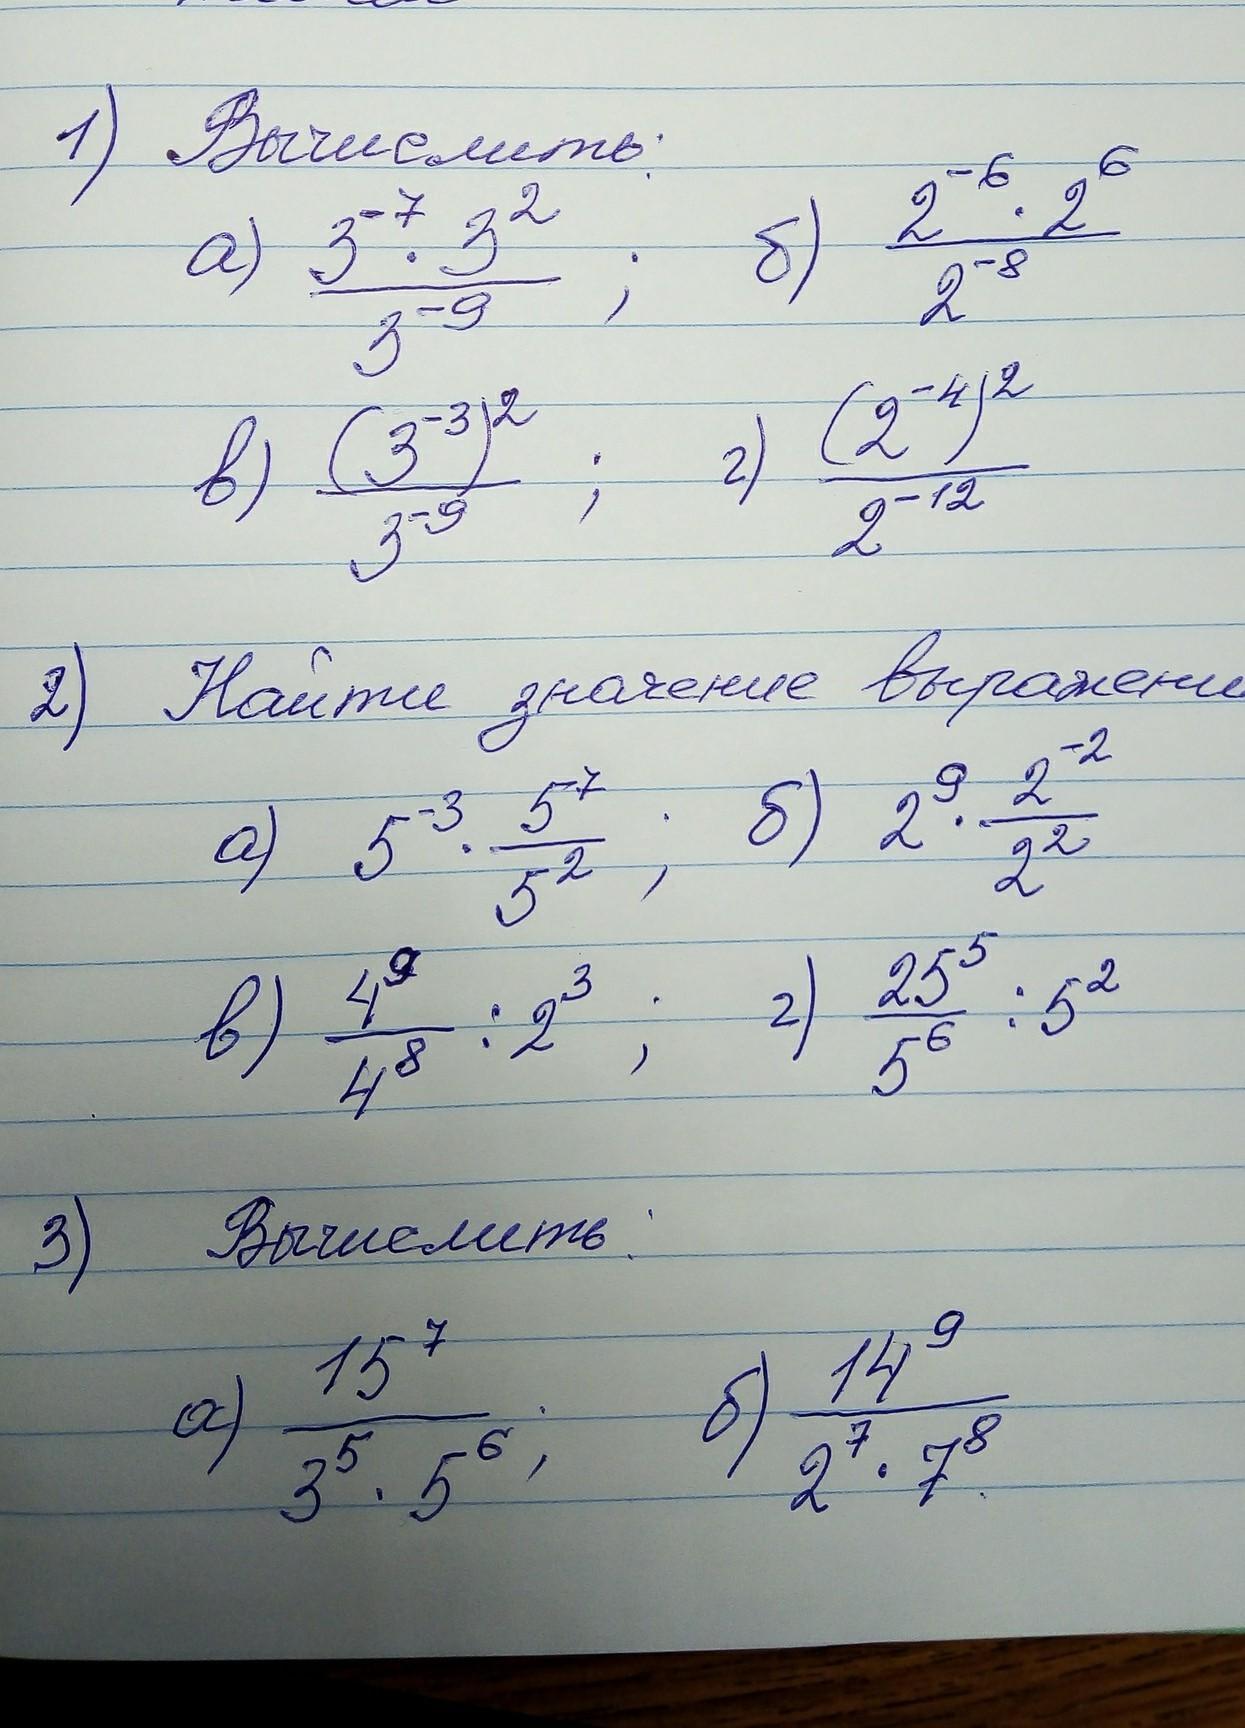 1) Вычислить:
а) (3⁻⁷ · 3²)/3⁻⁹ ; б) (2⁻⁶ · 2⁶)/2⁻⁸
в) (3⁻³)²/3⁻⁹ ; г) (2⁻⁴)²/2⁻¹²
2) Найти значение выражени
а) 5⁻³ · 5⁷/5² ; б) 2⁹ · 2⁻²/2²
в) 4⁹/4⁸ : 2³ ; г) 25⁵/5⁶ : 5²
3) Вычислить:
а) 15⁷/(3⁵ · 5⁶) ; б) 14⁹/(2⁷ · 7⁸).